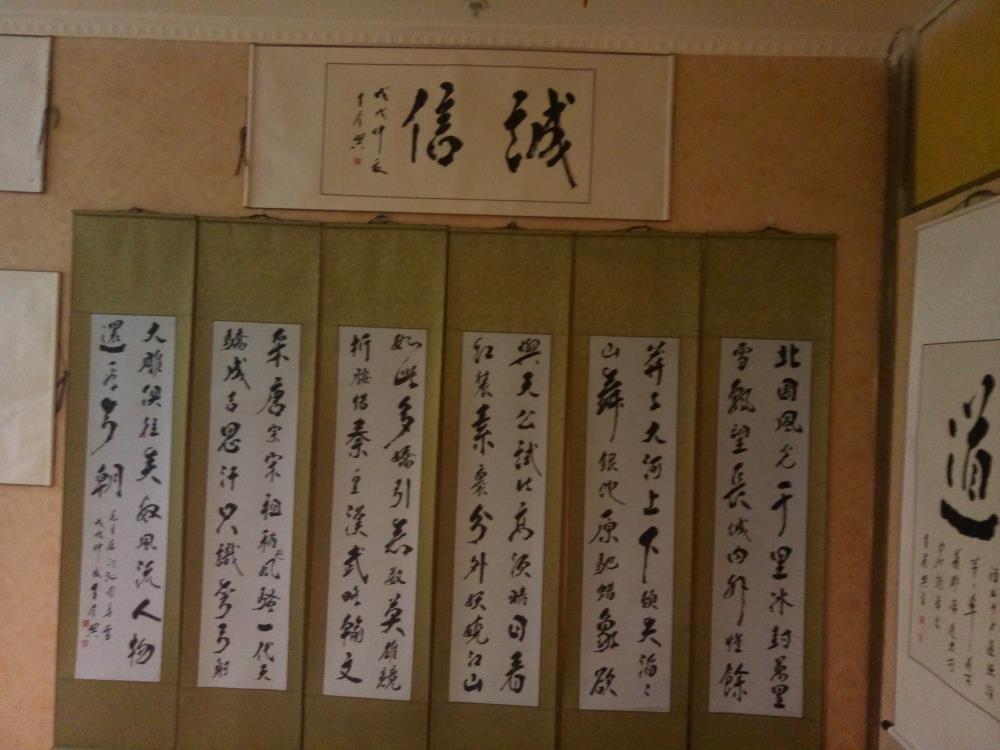 誠信
戊戌仲夏
北國風光千里冰封萬里
雪飄望長城內外惟餘
莽々大河上下頓失滔々
山舞銀蛇原馳蠟象欲
與天公試比高須晴日看
紅裝素裹分外妖嬈江山
如此多嬌引無數英雄競
折腰惜秦皇漢武略輸文
采唐宗宋祖稍遜風騷一代天
驕成吉思汗只識彎弓射
大雕俱往矣數風流人物
還看今朝
毛主席詞沁園春雪
戊戌仲夏
道